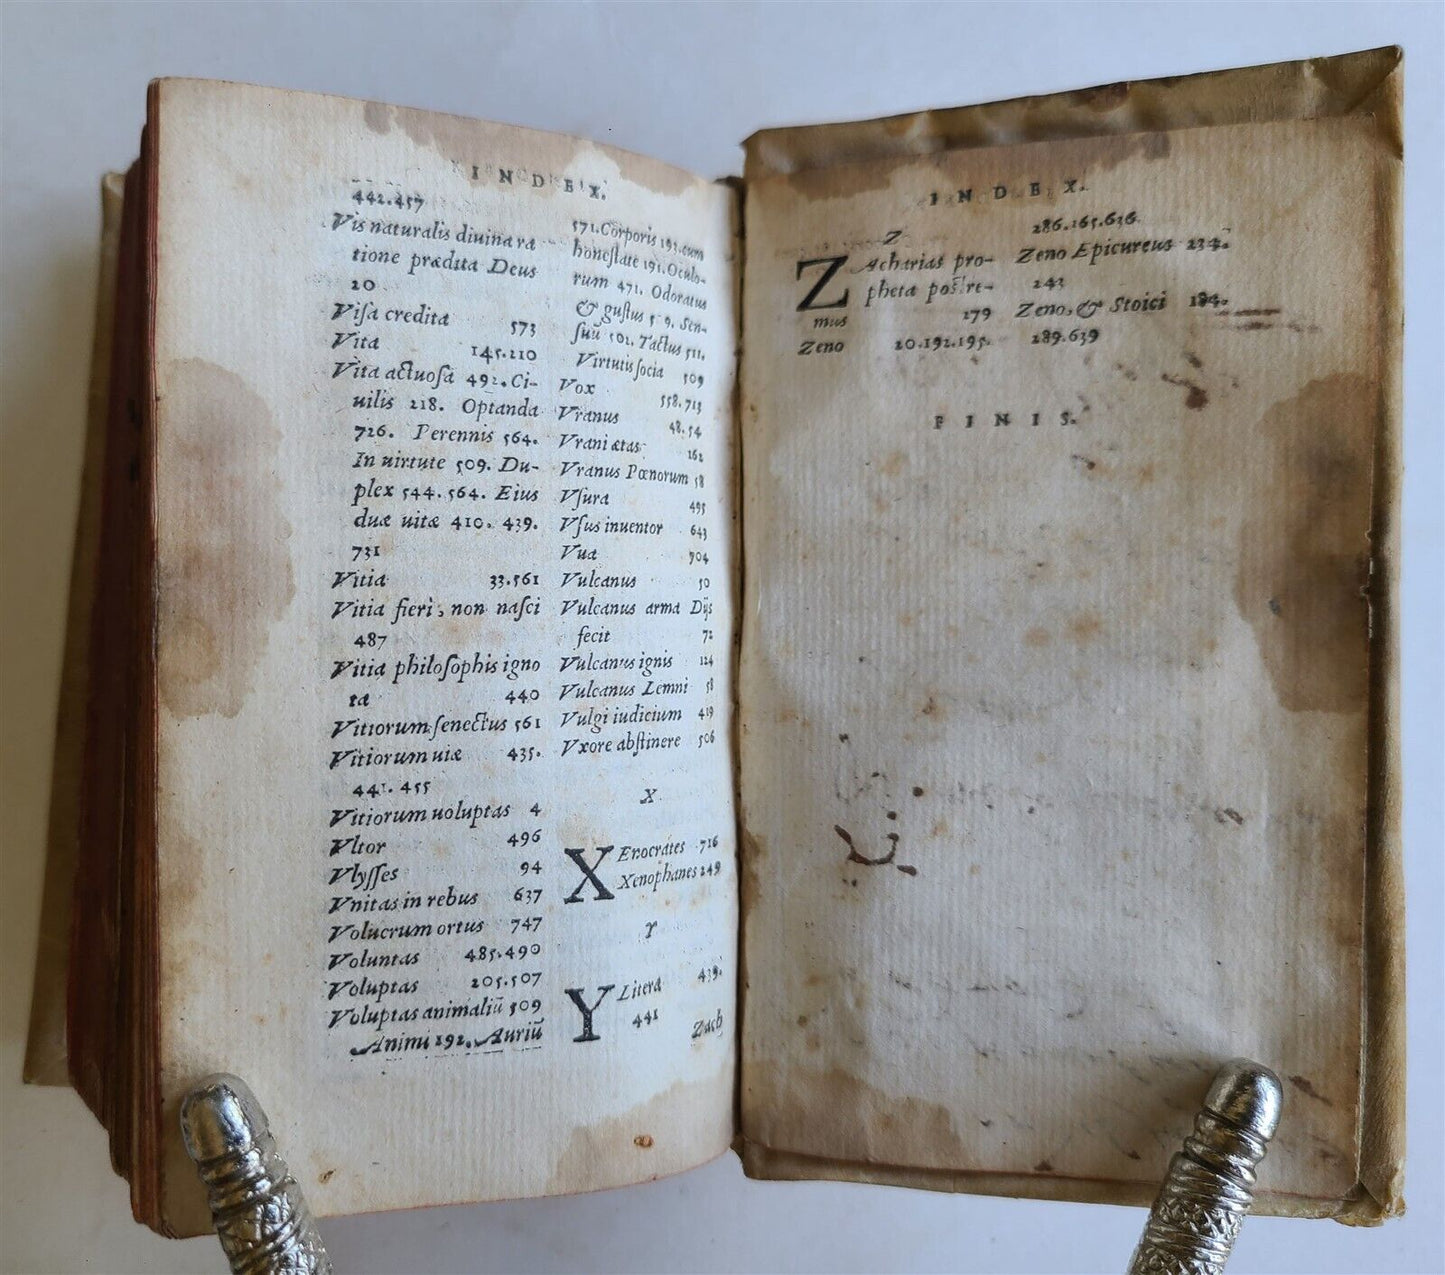 INDEX.
442.457
Vis naturalis diuina ra
tione prædita Deus
20
Visa credita 573
Vita 145.210
Vita actuosa 492. Ci-
uilis 218. Optanda
726. Perennis 564.
In uirtute 509. Du-
plex 544.564. Eius
duæ uitæ 410. 439.
731
Vitia 33.561
Vitia fieri, non nasci
487
Vitia philosophis igno
ta 440
Vitiorum senectus 561
Vitiorum uiæ 435.
441.455
Vitiorum uoluptas 4
Vltor 496
Vlysses 94
Vnitas in rebus 637
Volucrum ortus 747
Voluntas 485.490
Voluptas 205.507
Voluptas animaliū 509
Animi 192. Auriū
571. Corporis 193. cum
honestate 191. Oculo-
rum 471. Odoratus
& gustus 5 9. Sen-
suū 502. Tactus 511.
Virtutis socia 509
Vox 558.713
Vranus 48.54
Vrani ætas 162
Vranus Pœnorum 58
Vsura 495
Vsus inuentor 643
Vua 904
Vulcanus 50
Vulcanus arma Dijs
fecit 72
Vulcanus ignis 124
Vulcanus Lemni 58
Vulgi iudicium 419
Vxore abstinere 506
X
XEnocrates 726
Xenophanes 249
Y
Y Litera 439.
441
Zach
INDEX.
Z
ZAcharias pro-
pheta postre-
mus 179
Zeno 20.192.195.
286.165.636
Zeno Epicureus 234.
243
Zeno, & Stoici 184.
289.639
FINIS.